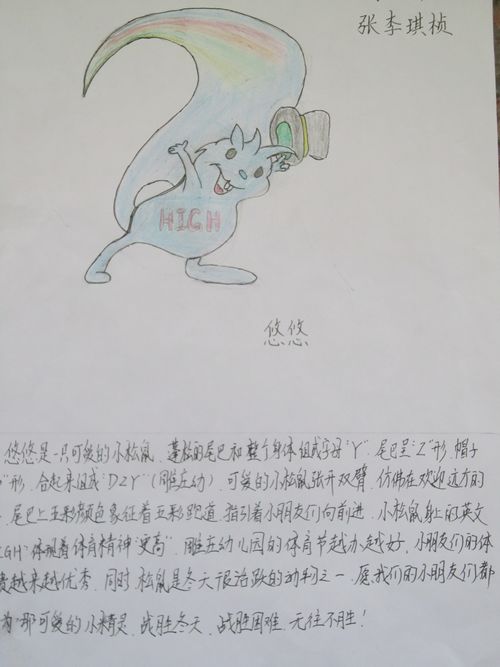 张李琪桢
HIGH
悠悠
悠悠是一只可爱的小松鼠、蓬松的尾巴和整个身体组成字母"Y"、尾巴呈"Z"形、帽子
"形、合起来组成"DZY"(雕庄幼) 可爱的小松鼠张开双臂、仿佛在欢迎远方的
尾巴上五彩颜色象征着五彩跑道、指引着小朋友们向前进、小松鼠身上的英文
IGH"体现着体育精神"更高"、雕庄幼儿园的体育节越办越好、小朋友们的体
越来越优秀、同时、松鼠是冬天很活跃的动物之一、愿我们的小朋友们都
为那可爱的小精灵、战胜冬天、战胜困难、无往不胜!